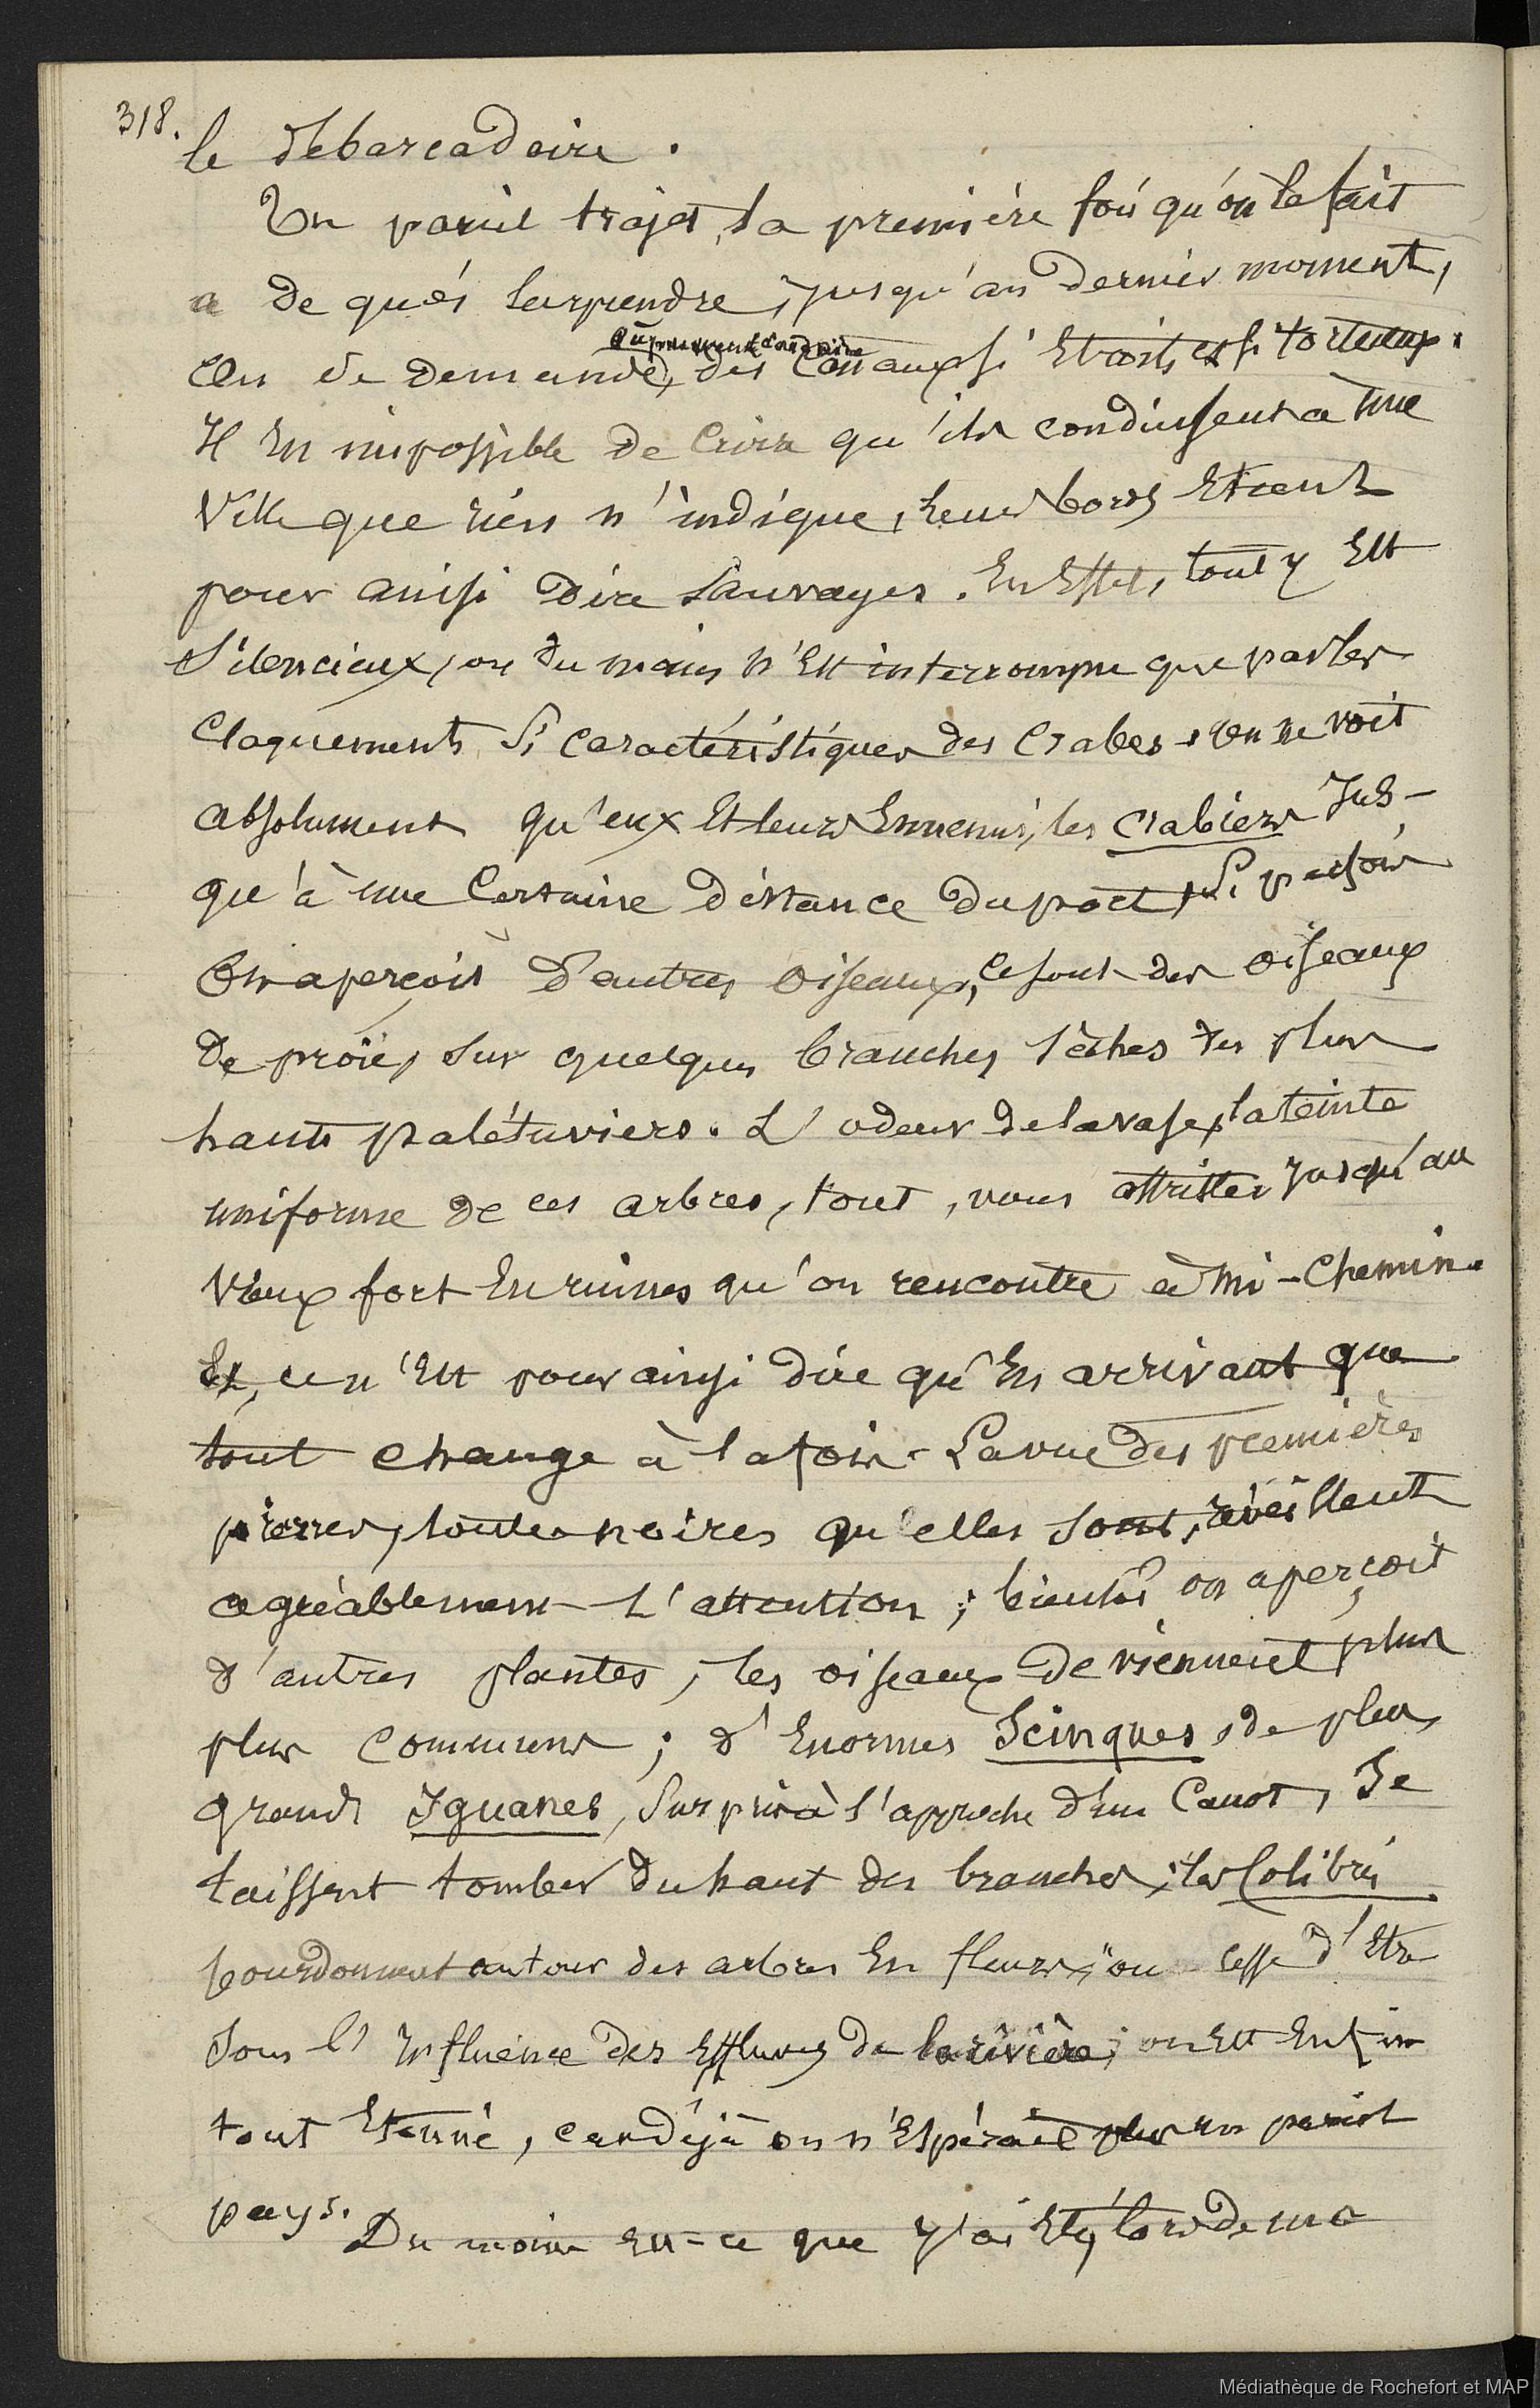 318.
le débarcadaire.
Un pareil trajet, la première fois qu'on le fait
a de quoi surprendre, jusqu'au dernier moment,
On se demande, où peuvent conduire des canaux si Etroits et si tortueux.
Il Est impossible de Croire qu'ils conduisent à une
Ville que rien n'indique, leurs bords Etant
pour ainsi dire sauvages. En Effet, tout y Est
Silencieux, ou du moins n'Est interrompu que par les
Claquements si caractéristiques des Crabes, on ne voit
absolument qu'eux Et leurs Ennemis, les Crabiers Jus-
qu'à une Certaine distance du port, Si parfois
On aperçoit d'autres oiseaux, ce sont des oiseaux
de proie, sur quelques branches sèches des plus
hauts palétuviers. L'odeur de la vase, la teinte
uniforme de ces arbres, tout, vous attriste, jusqu'au
Vieux fort En ruines qu'on rencontre à mi-Chemin.
Et, ce n'Est pour ainsi dire qu'En arrivant que
tout change à la fois. La vue des premières
pierres, toutes noires qu'elles sont, réveillent
agréablement L'attention; bientôt on aperçoit
d'autres plantes, les oiseaux deviennent plus
plus communs; d'Enormes Scinques, de plus
grands Iguanes, Surpris à l'approche d'un Canot, Se
laissent tomber du haut des branches; les Colibris
bourdonnent autour des arbres En fleurs; on cesse d'Etre
Sous l'Influence des Effluves de la rivière; on Est Enfin
tout Etonné, car déjà on n'Espérait plus un pareil
pays.
Du moins Est-ce que j'ai Eté, lors de ma
Médiathèque de Rochefort et MAP